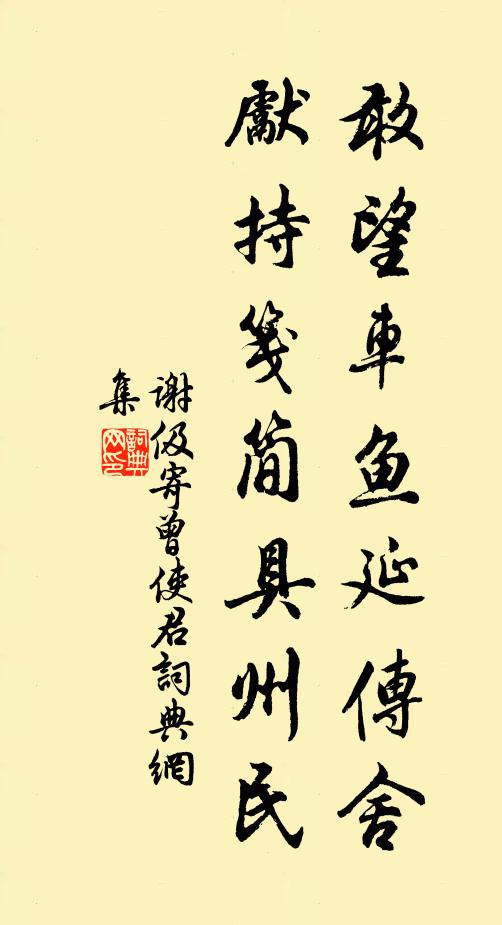 敢望車魚延傳舍
獻持箋簡具州民
謝伋寄曾使君詞典網
集
詞典
网印